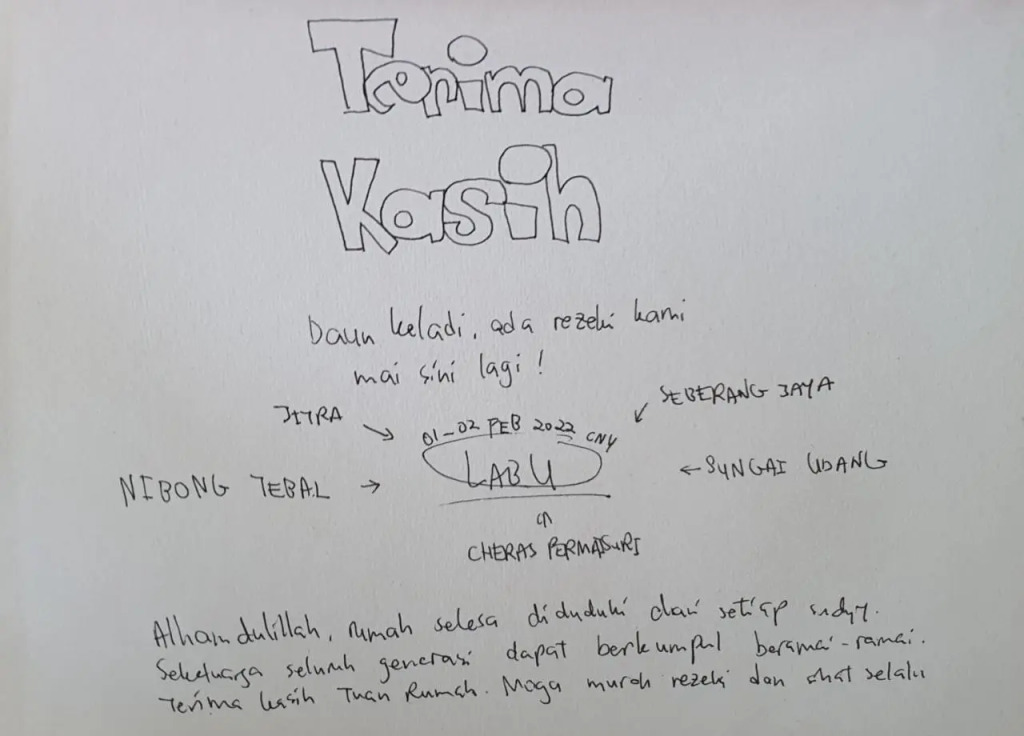 Terima
Kasih
Daun keladi, ada rezeki kami
mai sini lagi!
JITRA
SEBERANG JAYA
01-02 FEB 2022 CNY
NIBONG TEBAL → LABU ← SUNGAI UDANG
CHERAS PERMAISURI
Alhamdulillah, rumah selesa diduduki dari setiap sudut.
Sekeluarga seluruh generasi dapat berkumpul beramai-ramai.
Terima kasih Tuan Rumah. Moga murah rezeki dan sihat selalu